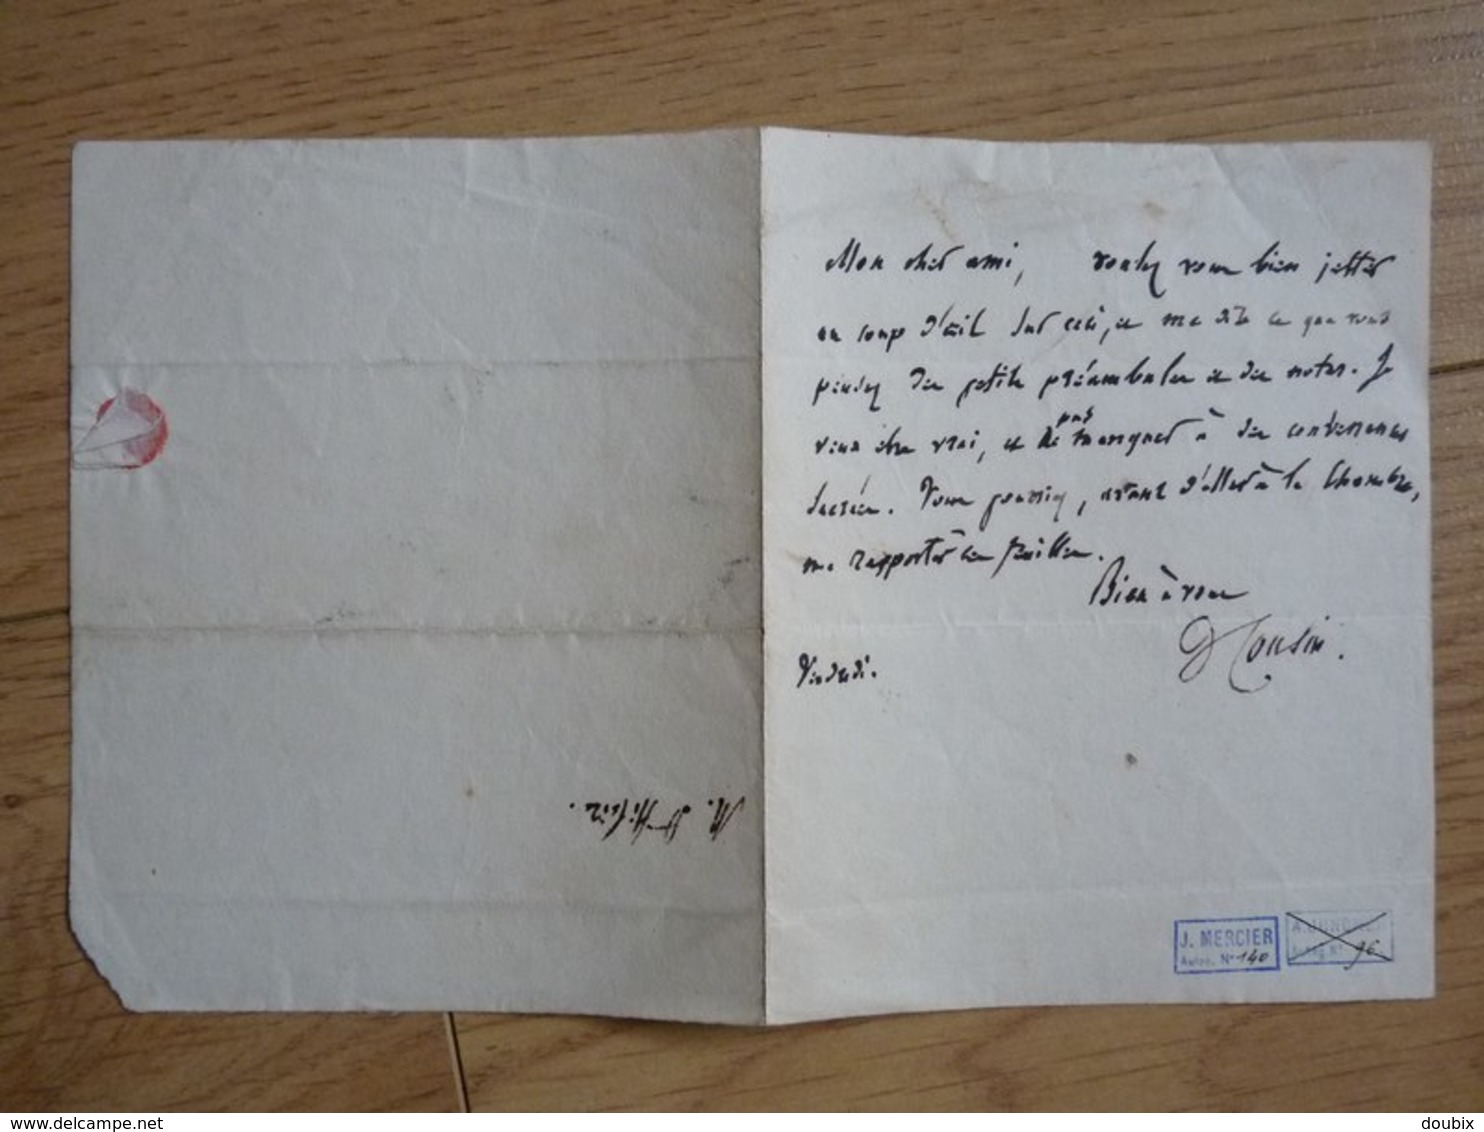 Mon cher ami, voulez vous bien jetter
un coup d'œil sur ceci, et me dire ce que vous
pensez des petits préambules et des notes. Je
veux être vrai, et ne pas manquer à des convenances
sacrées. Vous pourriez, avant d'aller à la Chambre,
me rapporter ces feuilles.
Bien à vous
V Cousin.
Vendredi.
M. St-Hilaire.
J. MERCIER
Autog. N° 140
Autog. N° 96
www.delcampe.net
doubix